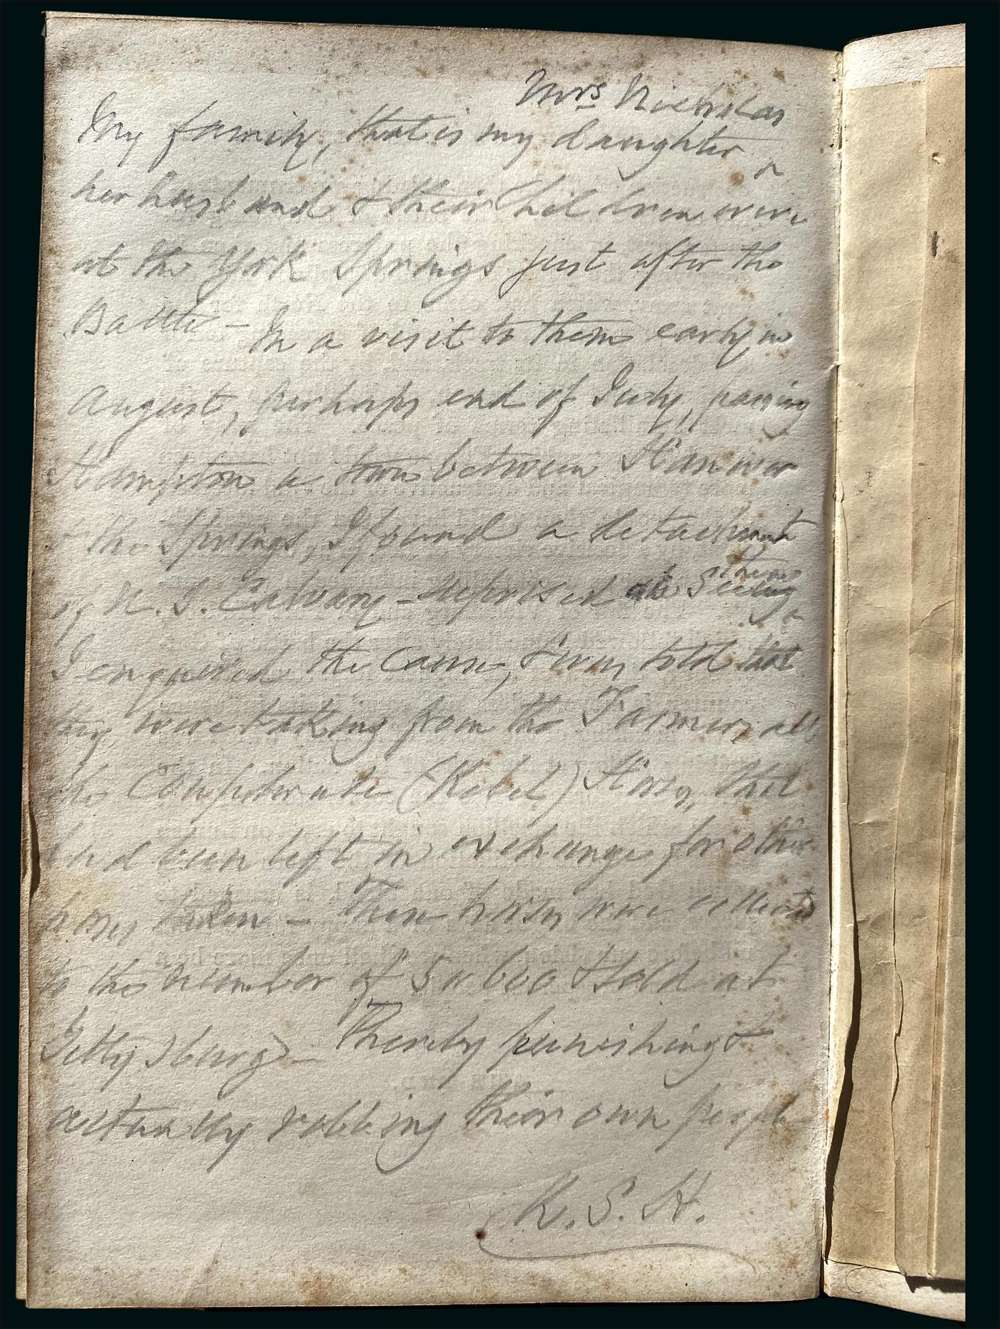 Mrs Nicholas
My family, that is my daughter &
her husband & their Children were
at the York Springs just after the
Battle – In a visit to them early in
August, perhaps end of July, passing
Hampton a town between Hanover
& the Springs, I found a detachment
of U. S. Calvary – surprised at Seeing them
I enquired the Cause, & was told that
they were taking from the Farmers, all
the Confederate (Rebel) Horses, that
had been left in exchange for other
horses taken – These horses were collected
to the number of 5 or 600 & sold at
Gettysburg – Thereby punishing &
actually robbing their own people
R. S. H.